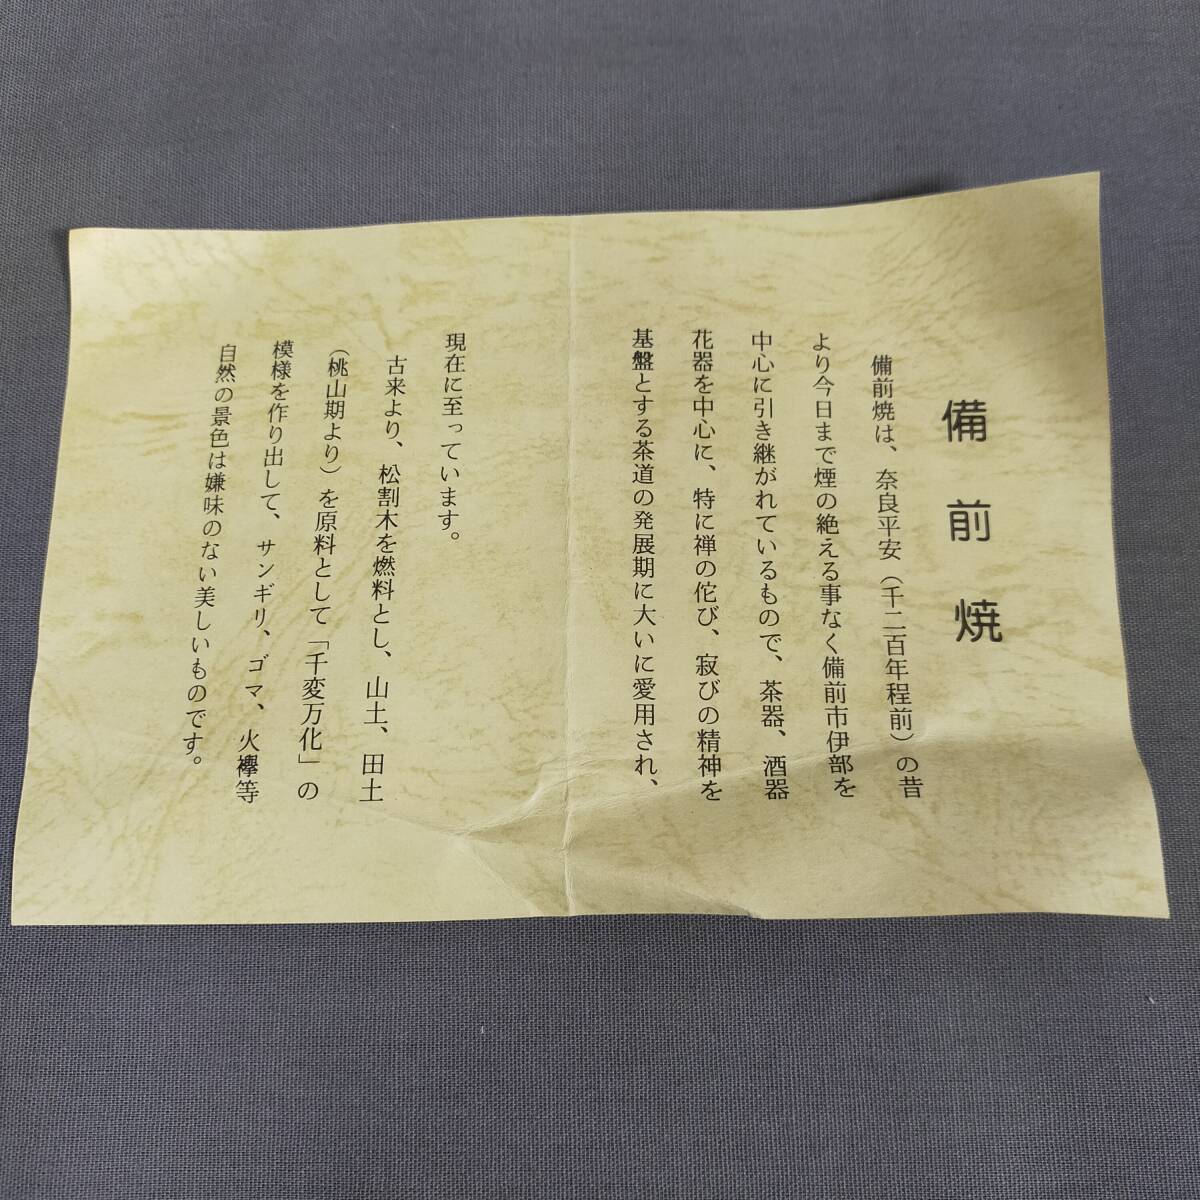 備前焼
備前焼は、奈良平安（千二百年程前）の昔
より今日まで煙の絶える事なく備前市伊部を
中心に引き継がれているもので、茶器、酒器
花器を中心に、特に禅の佗び、寂びの精神を
基盤とする茶道の発展期に大いに愛用され、
現在に至っています。
古来より、松割木を燃料とし、山土、田土
（桃山期より）を原料として「千変万化」の
模様を作り出して、サンギリ、ゴマ、火襷等
自然の景色は嫌味のない美しいものです。